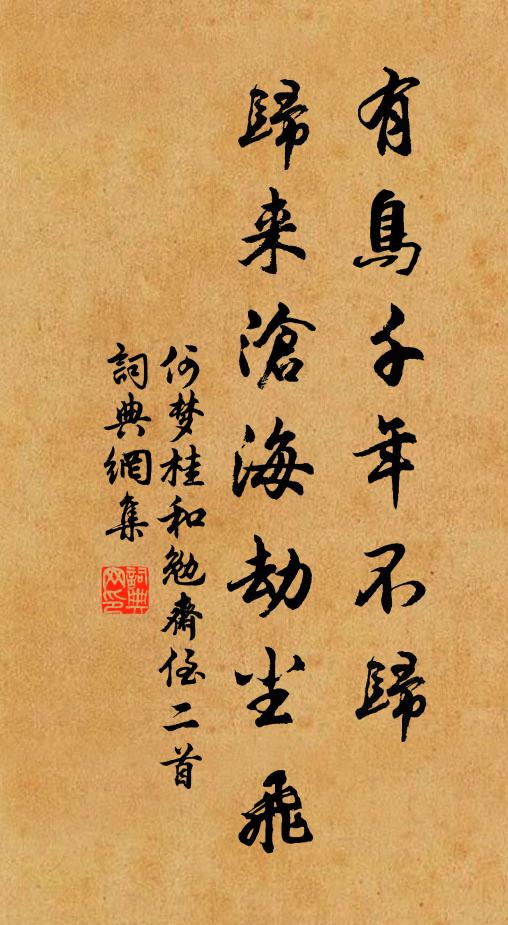 有鳥千年不歸
歸来滄海劫尘飛
何梦桂和勉齋侄二首
詞典網集
詞典网印